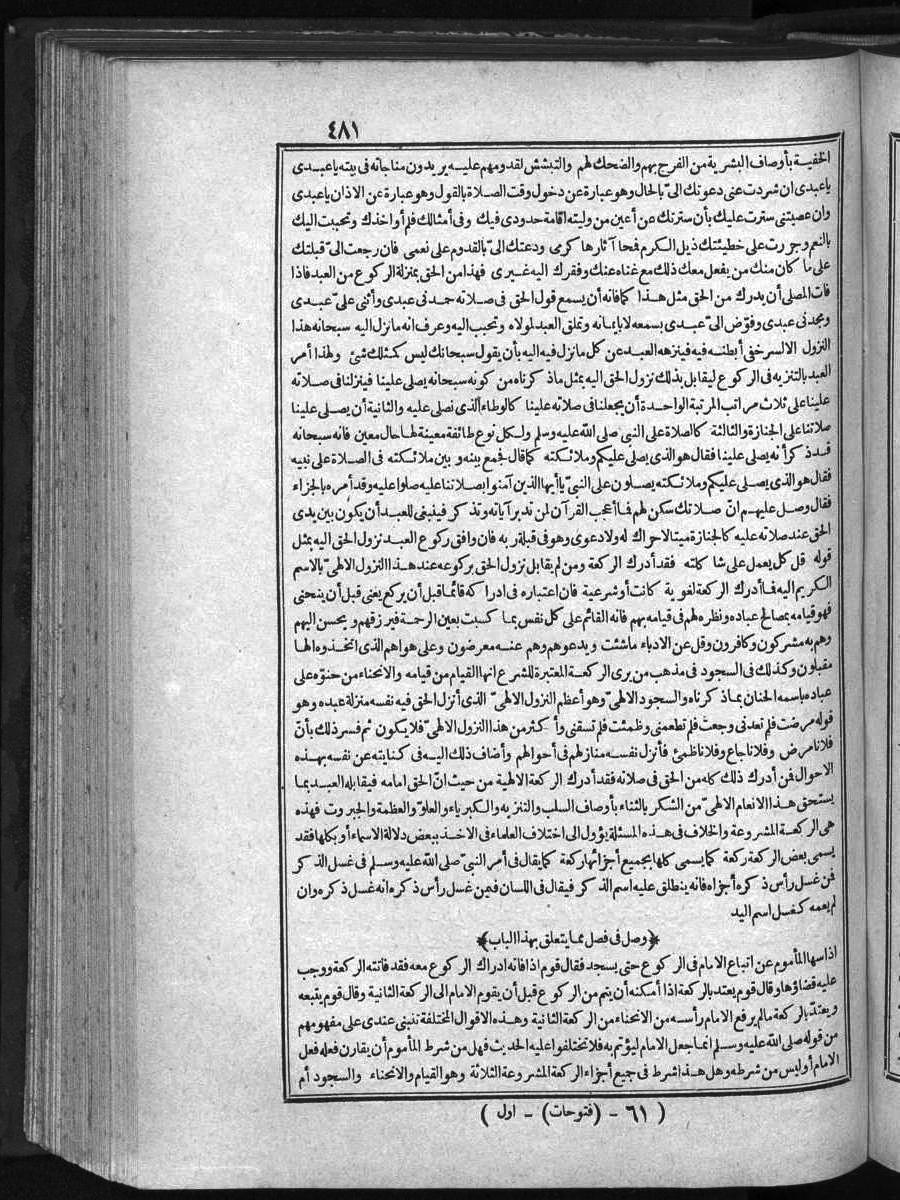 ٤٨١
الخفية بأوصاف البشرية من الفرح بهم والضحك لهم والتبشش لقدومهم عليه يريدون مناجاته في بيته يا عبدي
يا عبدي ان شردت عني دعوتك اليّ بالحال وهو عبارة عن دخول وقت الصلاة بالقول وهو عبارة عن الاذان يا عبدي
وان عصيتني سترت عليك بأن سترتك عن أعين من وليته اقامة حدودي فيك وفي أمثالك فلم أواخذك وتحببت اليك
بالنعم وجررت على خطيئتك ذيل الكرم فمحا آثارها كرمى ودعتك الىّ بالقدوم على نعمى فان رجعت الىّ قبلتك
على ما كان منك من يفعل معك ذلك مع غناه عنك وفقرك اليه غيرى فهذا من الحق بمنزلة الركوع من العبد فاذا
فات المصلى أن يدرك من الحق مثل هذا كما فاته أن يسمع قول الحق فى صلاته حمدنى عبدى وأثنى علىّ عبدى
ومجدنى عبدى وفوّض الىّ عبدى يسمعه لا بايمانه وتملق العبد لمولاه وتحبب اليه وعرف انه ما نزل اليه سبحانه هذا
النزول الا لسر خفىّ أبطنه فيه فينزهه العبد عن كل ما نزل فيه اليه بأن يقول سبحانك ليس كمثلك شئ ولهذا أمر
العبد بالتنزيه فى الركوع ليقابل بذلك نزول الحق اليه بمثل ما ذكرناه من كونه سبحانه يصلى علينا فينزلنا فى صلاته
علينا على ثلاث مراتب المرتبة الواحدة أن يجعلنا فى صلاته علينا كالوطاء الذى نصلى عليه والثانية أن يصلى علينا
صلاتنا على الجنازة والثالثة كالصلاة على النبى صلى الله عليه وسلم ولكل نوع طائفة معينة لها حال معين فانه سبحانه
قد ذكر أنه يصلى علينا فقال هو الذى يصلى عليكم وملائكته كما قال فجمع بينه وبين ملائكته فى الصلاة على نبيه
فقال هو الذى يصلى عليكم وملائكته يصلون على النبىّ يا أيها الذين آمنوا بصلاتنا عليه صلوا عليه وقد أمره بالجزاء
فقال وصل عليهم انّ صلاتك سكن لهم فما أعجب القرآن لمن تدبر آياته وتذكر فينبغى للعبد أن يكون بين يدى
الحق عند صلاته عليه كالجنازة ميتا لا حراك له ولا دعوى وهو فى قبلة ربه فان وافق ركوع العبد نزول الحق اليه بمثل
قوله قل كل يعمل على شاكلته فقد أدرك الركعة ومن لم يقابل نزول الحق بركوعه عند هذا النزول الالهىّ بالاسم
الكريم اليه فما أدرك الركعة لغوية كانت أو شرعية فان اعتباره فى ادراكه قائما قبل أن يركع يعنى قبل أن ينحنى
فهو قيامه بمصالح عباده ونظره لهم فى قيامه بهم فانه القائم على كل نفس بما كسبت بعين الرحمة فيرزقهم ويحسن اليهم
وهم به مشركون وكافرون وقل عن الادباء ما شئت ويدعوهم وهم عنه معرضون وعلى هواهم الذى اتخذوه الها
مقبلون وكذلك فى السجود فى مذهب من يرى الركعة المعتبرة للشرع انها القيام من قيامه والانحناء من حنوّه على
عباده باسمه الحنان بما ذكرناه والسجود الالهىّ وهو أعظم النزول الالهىّ الذى أنزل الحق فيه نفسه منزلة عبده وهو
قوله مرضت فلم تعدنى وجعت فلم تطعمنى وظمئت فلم تسقنى وأكثر من هذا النزول الالهىّ فلا يكون ثم فسر ذلك بأنّ
فلانا مرض وفلانا جاع وفلانا ظمئ فأنزل نفسه منازلهم فى أحوالهم وأضاف ذلك اليه فى كنايته عن نفسه بهذه
الاحوال فمن أدرك ذلك كله من الحق فى صلاته فقد أدرك الركعة الالهية من حيث انّ الحق امامه فيقابله العبد بما
يستحق هذا الانعام الالهىّ من الشكر بالثناء بأوصاف السلب والتنزيه والكبرياء والعلوّ والعظمة والجبروت فهذه
هى الركعة المشروعة والخلاف فى هذه المسئلة يؤول الى اختلاف العلماء فى الاخذ ببعض دلالة الاسماء أو بكلها فقد
يسمى بعض الركعة ركعة كما يسمى كلها بجميع أجزائها ركعة كما يقال فى أمر النبىّ صلى الله عليه وسلم فى غسل الذكر
فمن غسل رأس ذكره أجزاه فانه ينطلق عليه اسم الذكر فيقال فى اللسان فيمن غسل رأس ذكره انه غسل ذكره وان
لم يعمه كغسل اسم اليد
﴿وصل فى فصل مما يتعلق بهذا الباب﴾
اذا سها المأموم عن اتباع الامام فى الركوع حتى يسجد فقال قوم اذا فاته ادراك الركوع معه فقد فاتته الركعة ووجب
عليه قضاؤها وقال قوم يعتد بالركعة اذا أمكنه أن يتم من الركوع قبل أن يقوم الامام الى الركعة الثانية وقال قوم يتبعه
ويعتدّ بالركعة ما لم يرفع الامام رأسه من الانحناء من الركعة الثانية وهذه الاقوال المختلفة تنبنى عندى على مفهومهم
من قوله صلى الله عليه وسلم انما جعل الامام ليؤتم به فلا تختلفوا عليه الحديث فهل من شرط المأموم أن يقارن فعله فعل
الامام أو ليس من شرطه وهل هذا شرط فى جميع أجزاء الركعة المشروعة الثلاثة وهو القيام والانحناء والسجود أم
( ٦١ - (فتوحات) - اول )